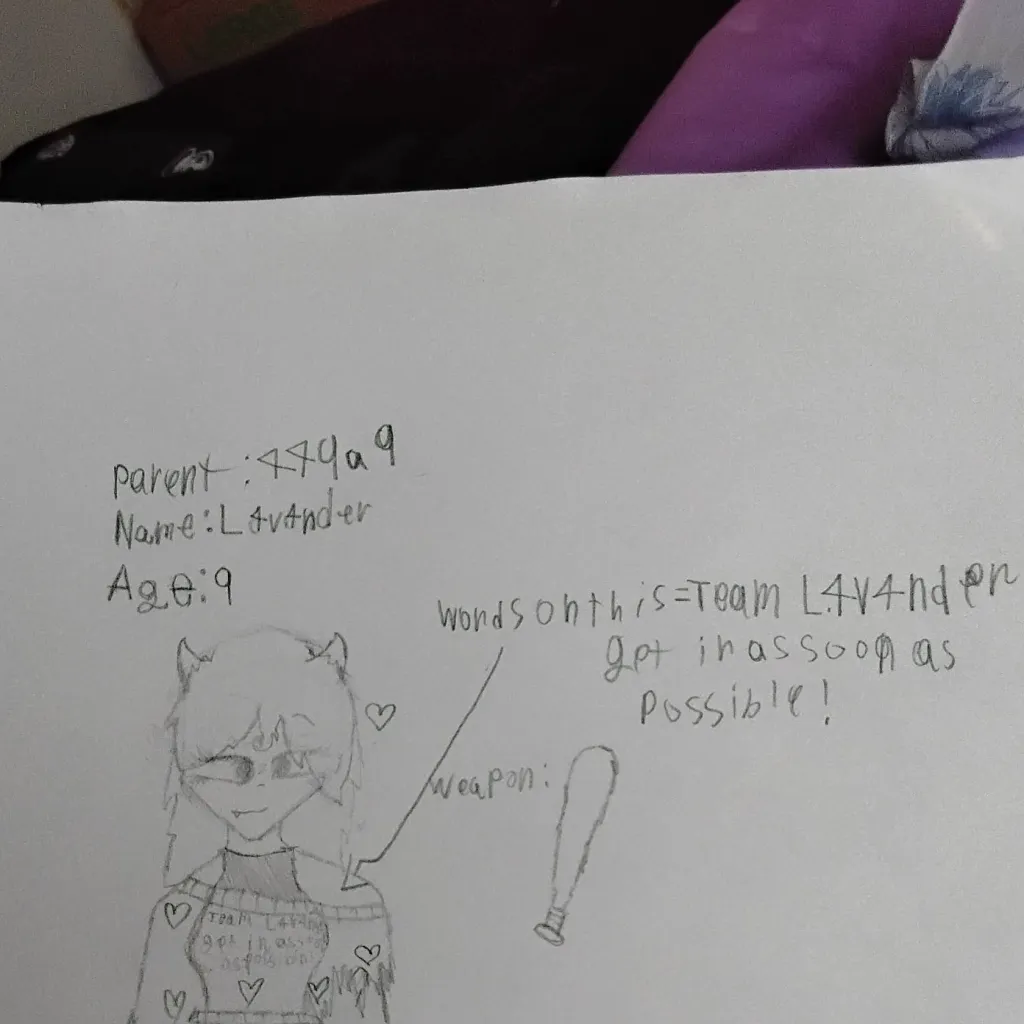 Parent:449a9
Name:L4v4nder
Age:9
words on this=Team L4v4nder
get in as soon as
possible!
weapon:
Team L4v4n
get in as soo
as possible!